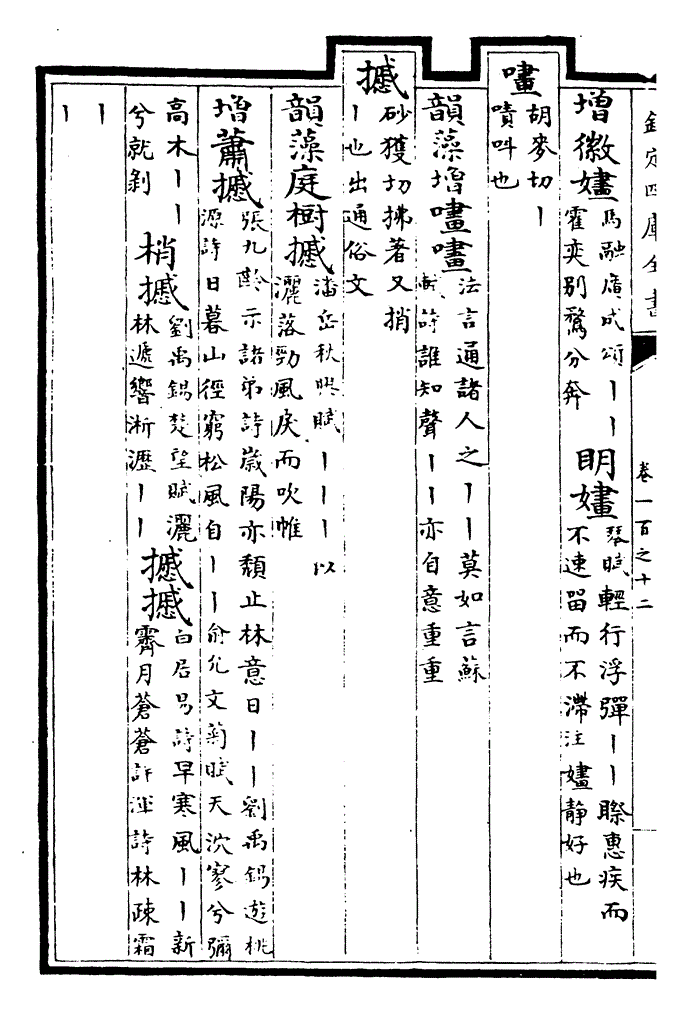 欽定四庫全書
卷一百之十二
增徽嫿 馬融廣成頌丨丨
霍奕别騖分奔
明嫿 琴賦輕行浮彈丨丨㬋惠疾而
不速留而不滯注嫿静好也
嚍 胡麥切丨
嘖呌也
韻藻增嚍嚍 法言通諸人之丨丨莫如言蘇
軾詩誰知聲丨丨亦自意重重
摵 砂獲切拂著又捎
丨也出通俗文
韻藻庭樹摵 潘岳秋興賦丨丨丨以
灑落勁風戾而吹帷
增蕭摵 張九齡示諸弟詩嵗陽亦頽止林意日丨丨劉禹錫遊桃
源詩日暮山徑窮松風自丨丨俞允文菊賦天泬寥兮彌
高木丨丨
兮就剝
梢摵 劉禹錫楚望賦灑
林遞響淅瀝丨丨
摵摵 白居易詩早寒風丨丨新
霽月蒼蒼許渾詩林疎霜
丨
丨